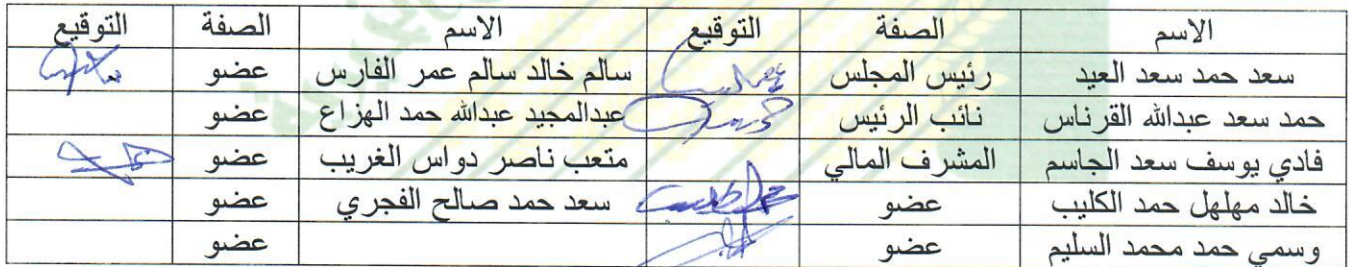 الاسم الصفة التوقيع الاسم الصفة التوقيع
سعد حمد سعد العيد رئيس المجلس سالم خالد سالم عمر الفارس عضو
حمد سعد عبدالله القرناس نائب الرئيس عبدالمجيد عبدالله حمد الهزاع عضو
فادي يوسف سعد الجاسم المشرف المالي متعب ناصر دواس الغريب عضو
خالد مهلهل حمد الكليب عضو سعد حمد صالح الفجري عضو
وسمي حمد محمد السليم عضو عضو